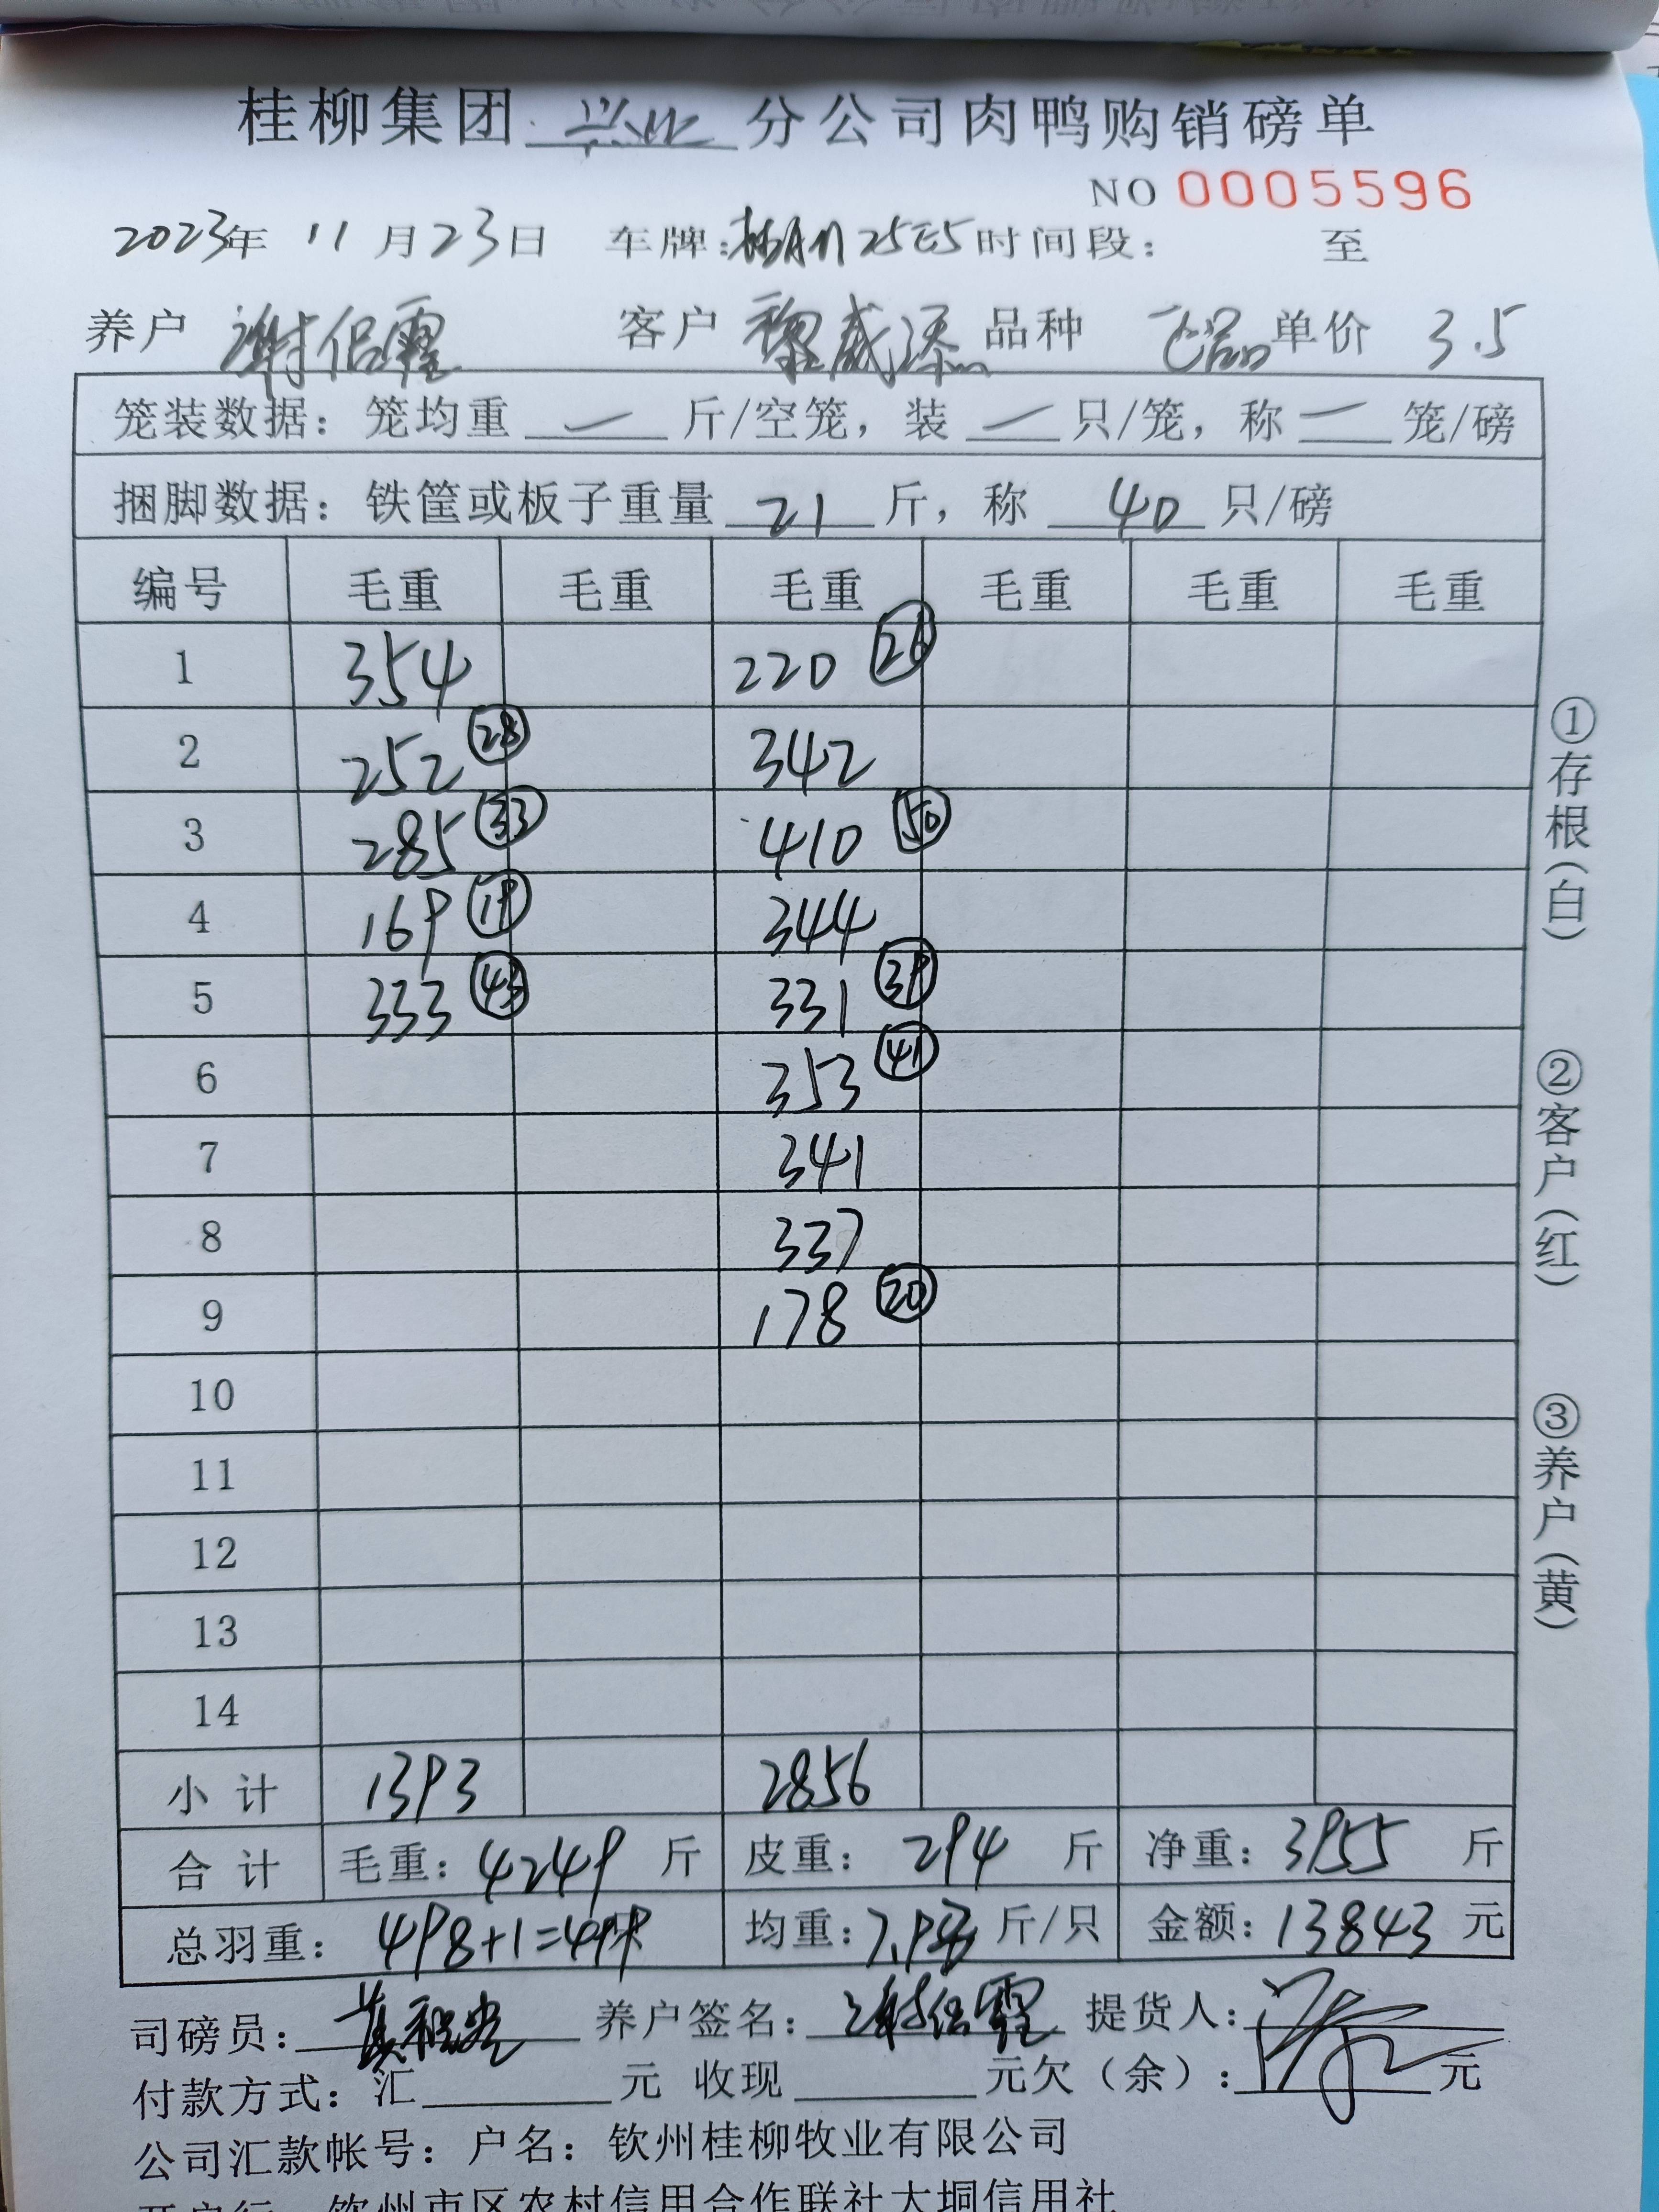 桂柳集团 兴业 分公司肉鸭购销磅单
NO 0005596
2023年 11 月23日 车牌: 25E5 时间段: 至
养户 谢侣霞 客户 黎威添 品种 单价 3.5
笼装数据: 笼均重 — 斤/空笼, 装 — 只/笼, 称 — 笼/磅
捆脚数据: 铁筐或板子重量 21 斤, 称 40 只/磅
编号 毛重 毛重 毛重 毛重 毛重 毛重
1 354 220 ㉖
2 252 ㉘ 342
3 285 ㉝ 410 ㊿
4 169 ⑲ 344
5 333 ㊸ 331 ㊴
6 353 ㊶
7 341
8 337
9 178 ⑳
10
11
12
13
14
小 计 1393 2856
合 计 毛重: 4249 斤 皮重: 294 斤 净重: 3955 斤
总羽重: 498+1=499 均重: 7.93 斤/只 金额: 13843 元
司磅员: 养户签名: 谢侣霞 提货人:
付款方式: 汇 元 收现 元欠(余): 元
公司汇款帐号: 户名: 钦州桂柳牧业有限公司
开户行 钦州市区农村信用合作联社大垌信用社
①存根(白)
②客户(红)
③养户(黄)